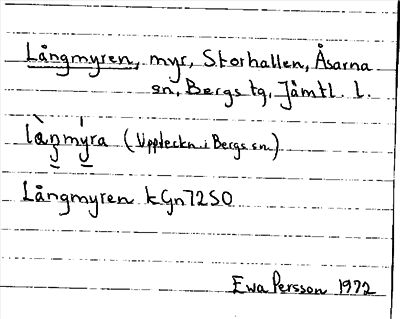 Långmyren, myr, Storhallen, Åsarna
sn, Bergs tg, Jämtl. l.
làŋmýra (Uppteckn. i Bergs sn.)
Långmyren kGn72SO
Ewa Persson 1972